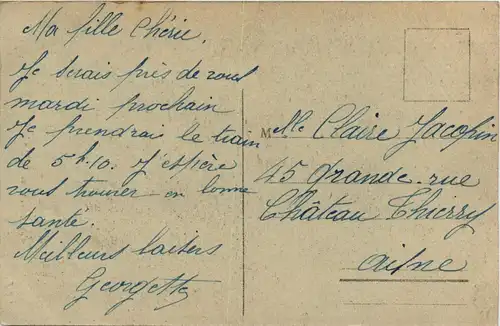 Ma fille Chérie.
Je serais près de vous
mardi prochain
Je prendrai le train
de 5h.10. J'espère
vous trouver en bonne
santé.
Meilleurs baisers
Georgette
Melle Claire Jacopin
45 grande-rue
Château Thierry
Aisne